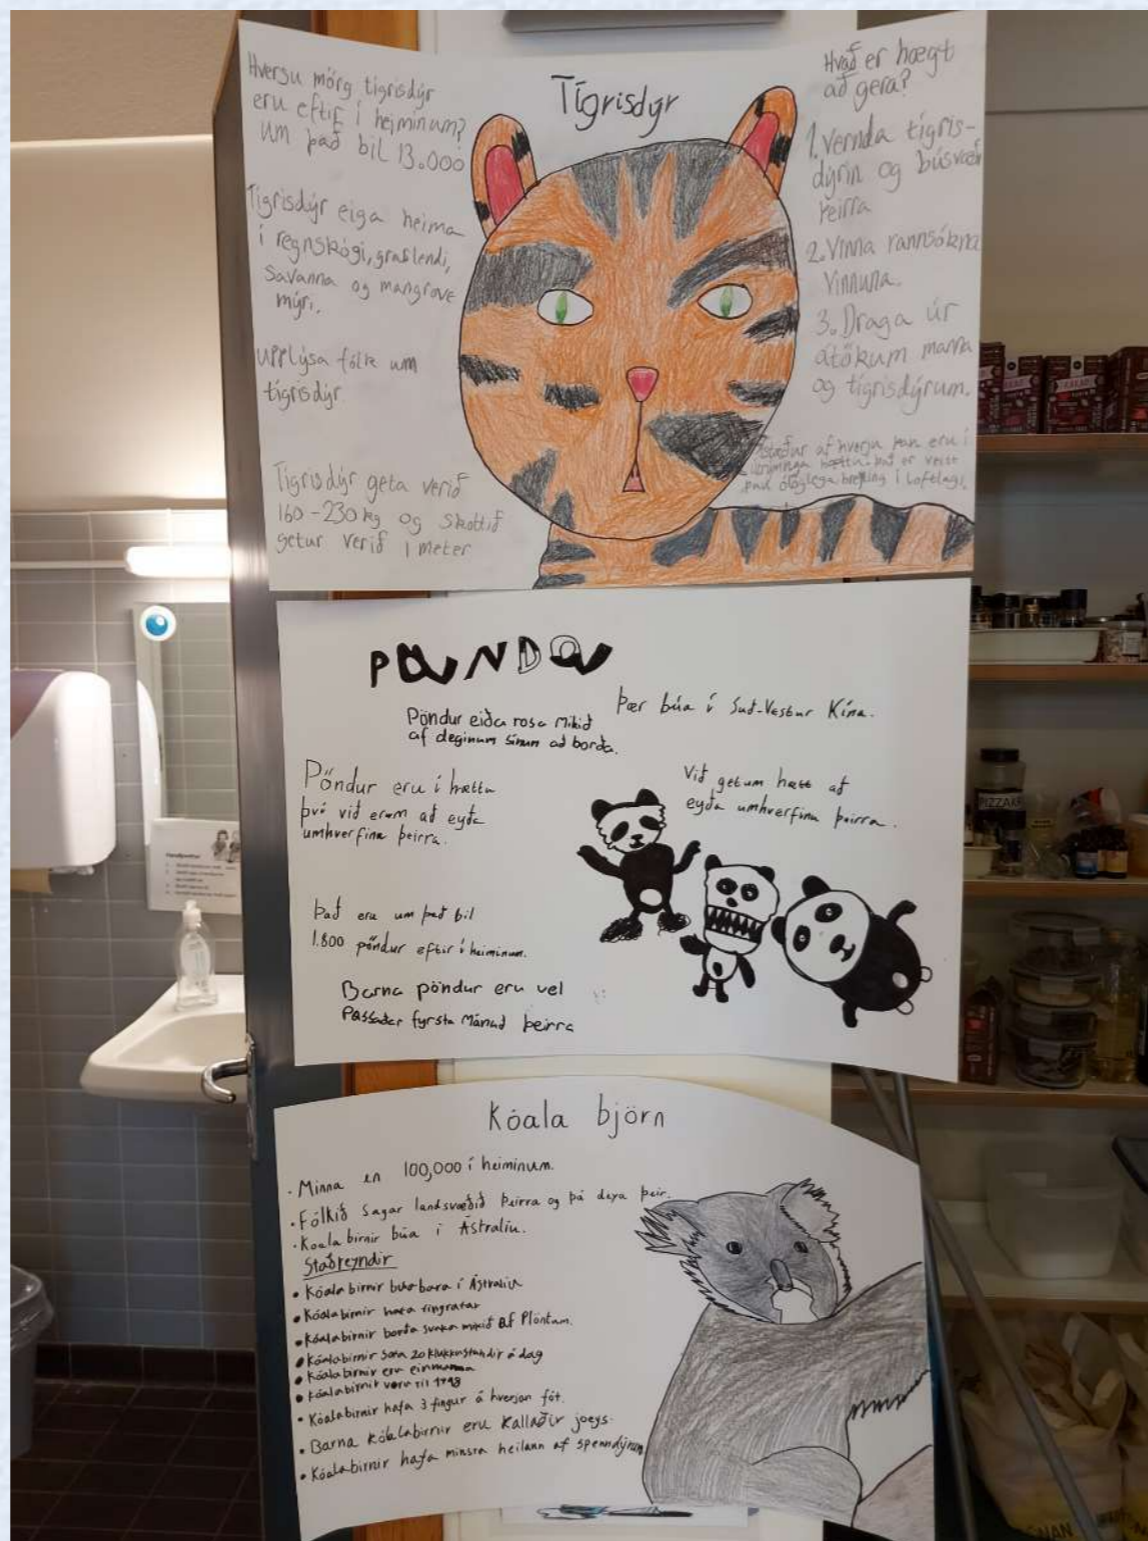 Tígrisdýr
Hversu mörg tígrisdýr
eru eftir í heiminum?
Um það bil 13.000
Tígrisdýr eiga heima
í regnskógi, graslendi,
Savanna og mangrove
mýri.
Upplýsa fólk um
tígrisdýr
Tígrisdýr geta verið
160-230 kg og skottið
getur verið 1 meter
Hvað er hægt
að gera?
1. Vernda tígris-
dýrin og búsvæði
þeirra
2. Vinna rannsókna
vinnuna.
3. Draga úr
átökum manna
og tígrisdýrum.
af hverju þau eru í
hættu. það er veitt
þau ólöglega, breyting í loftslagi.
PANDA
Pöndur eiða rosa mikið
af deginum sínum að borða.
Þær búa í Suð-Vestur Kína.
Pöndur eru í hættu
því við erum að eyða
umhverfinu þeirra.
Við getum hætt að
eyða umhverfinu þeirra.
Það eru um það bil
1.800 pöndur eftir í heiminum.
Barna pöndur eru vel
Passaðar fyrsta Mánuð þeirra
Kóala björn
• Minna en 100,000 í heiminum.
• Fólkið sagar landsvæðið þeirra og þá deyja þeir.
• Koala birnir búa í Ástralíu.
Staðreyndir
• Kóala birnir búa bara í Ástralíu
• Kóalabirnir hafa fingraför
• Kóalabirnir borða svaka mikið af Plöntum.
• Kóalabirnir sofa 20 klukkustundir á dag
• Kóalabirnir eru einmanna
• Kóalabirnir voru til
• Kóalabirnir hafa 3 fingur á hverjum fót.
• Barna kóalabirnir eru kallaðir joeys.
• Kóalabirnir hafa minsta heilann af spenndýrum
PIZZAKR